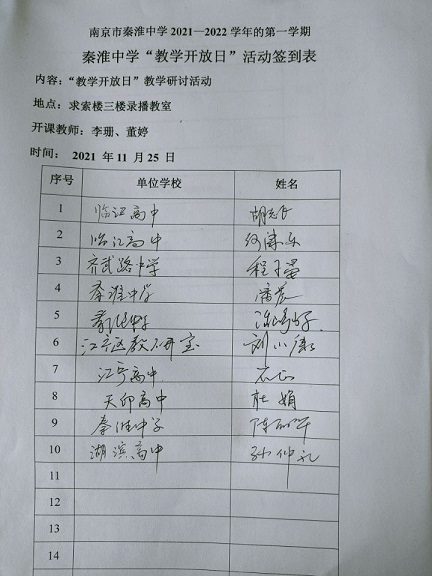 南京市秦淮中学 2021—2022 学年的第一学期
秦淮中学“教学开放日”活动签到表
内容：“教学开放日”教学研讨活动
地点：求索楼三楼录播教室
开课教师：李珊、董婷
时间： 2021 年 11 月 25 日
序号 单位学校 姓名
1 临江高中
2 临江高中
3 齐武路中学
4 秦淮中学
5
6 江宁区教研室 刘小康
7 江宁高中
8 天印高中 杜娟
9 秦淮中学
10 湖滨高中 孙仲礼
11
12
13
14